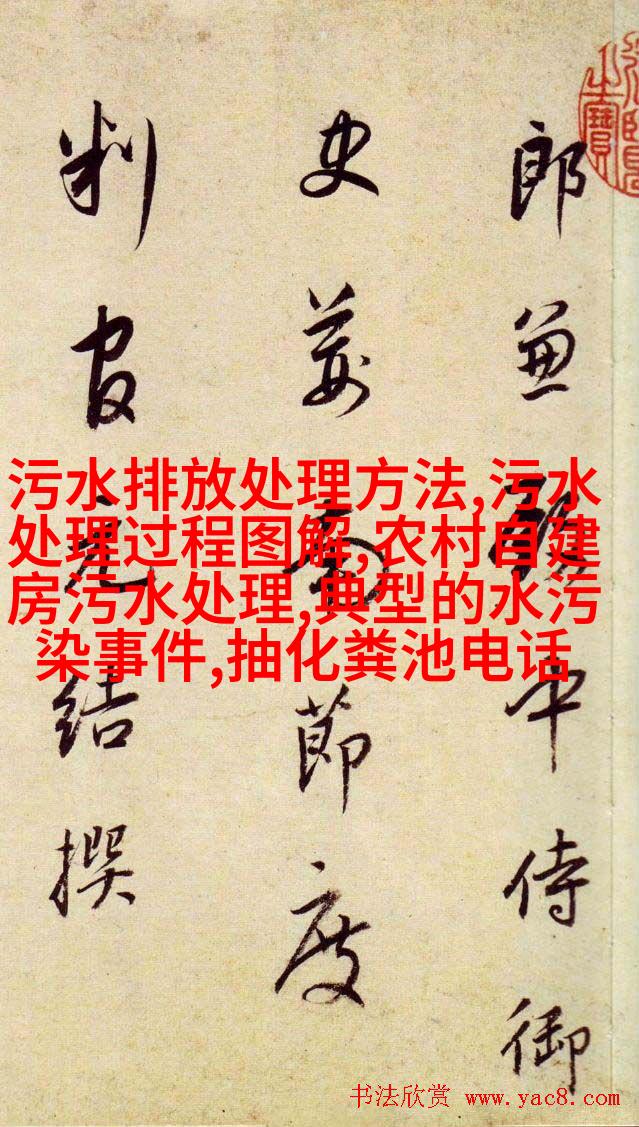 郎兼殿中侍御
史荆南節度
判官元結撰
污水排放处理方法,污水
处理过程图解,农村自建
房污水处理,典型的水污
染事件,抽化粪池电话
书法欣赏 www.yac8.com